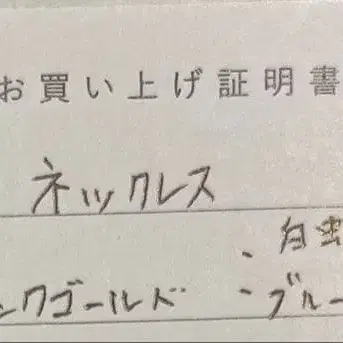 お買い上げ証明書
ネックレス
・白蝶
ンクゴールド ・ブルー